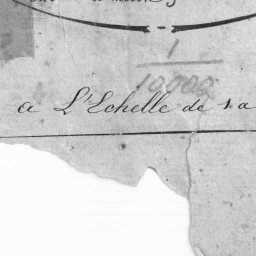 1
10000
a L'Echelle de 1 a